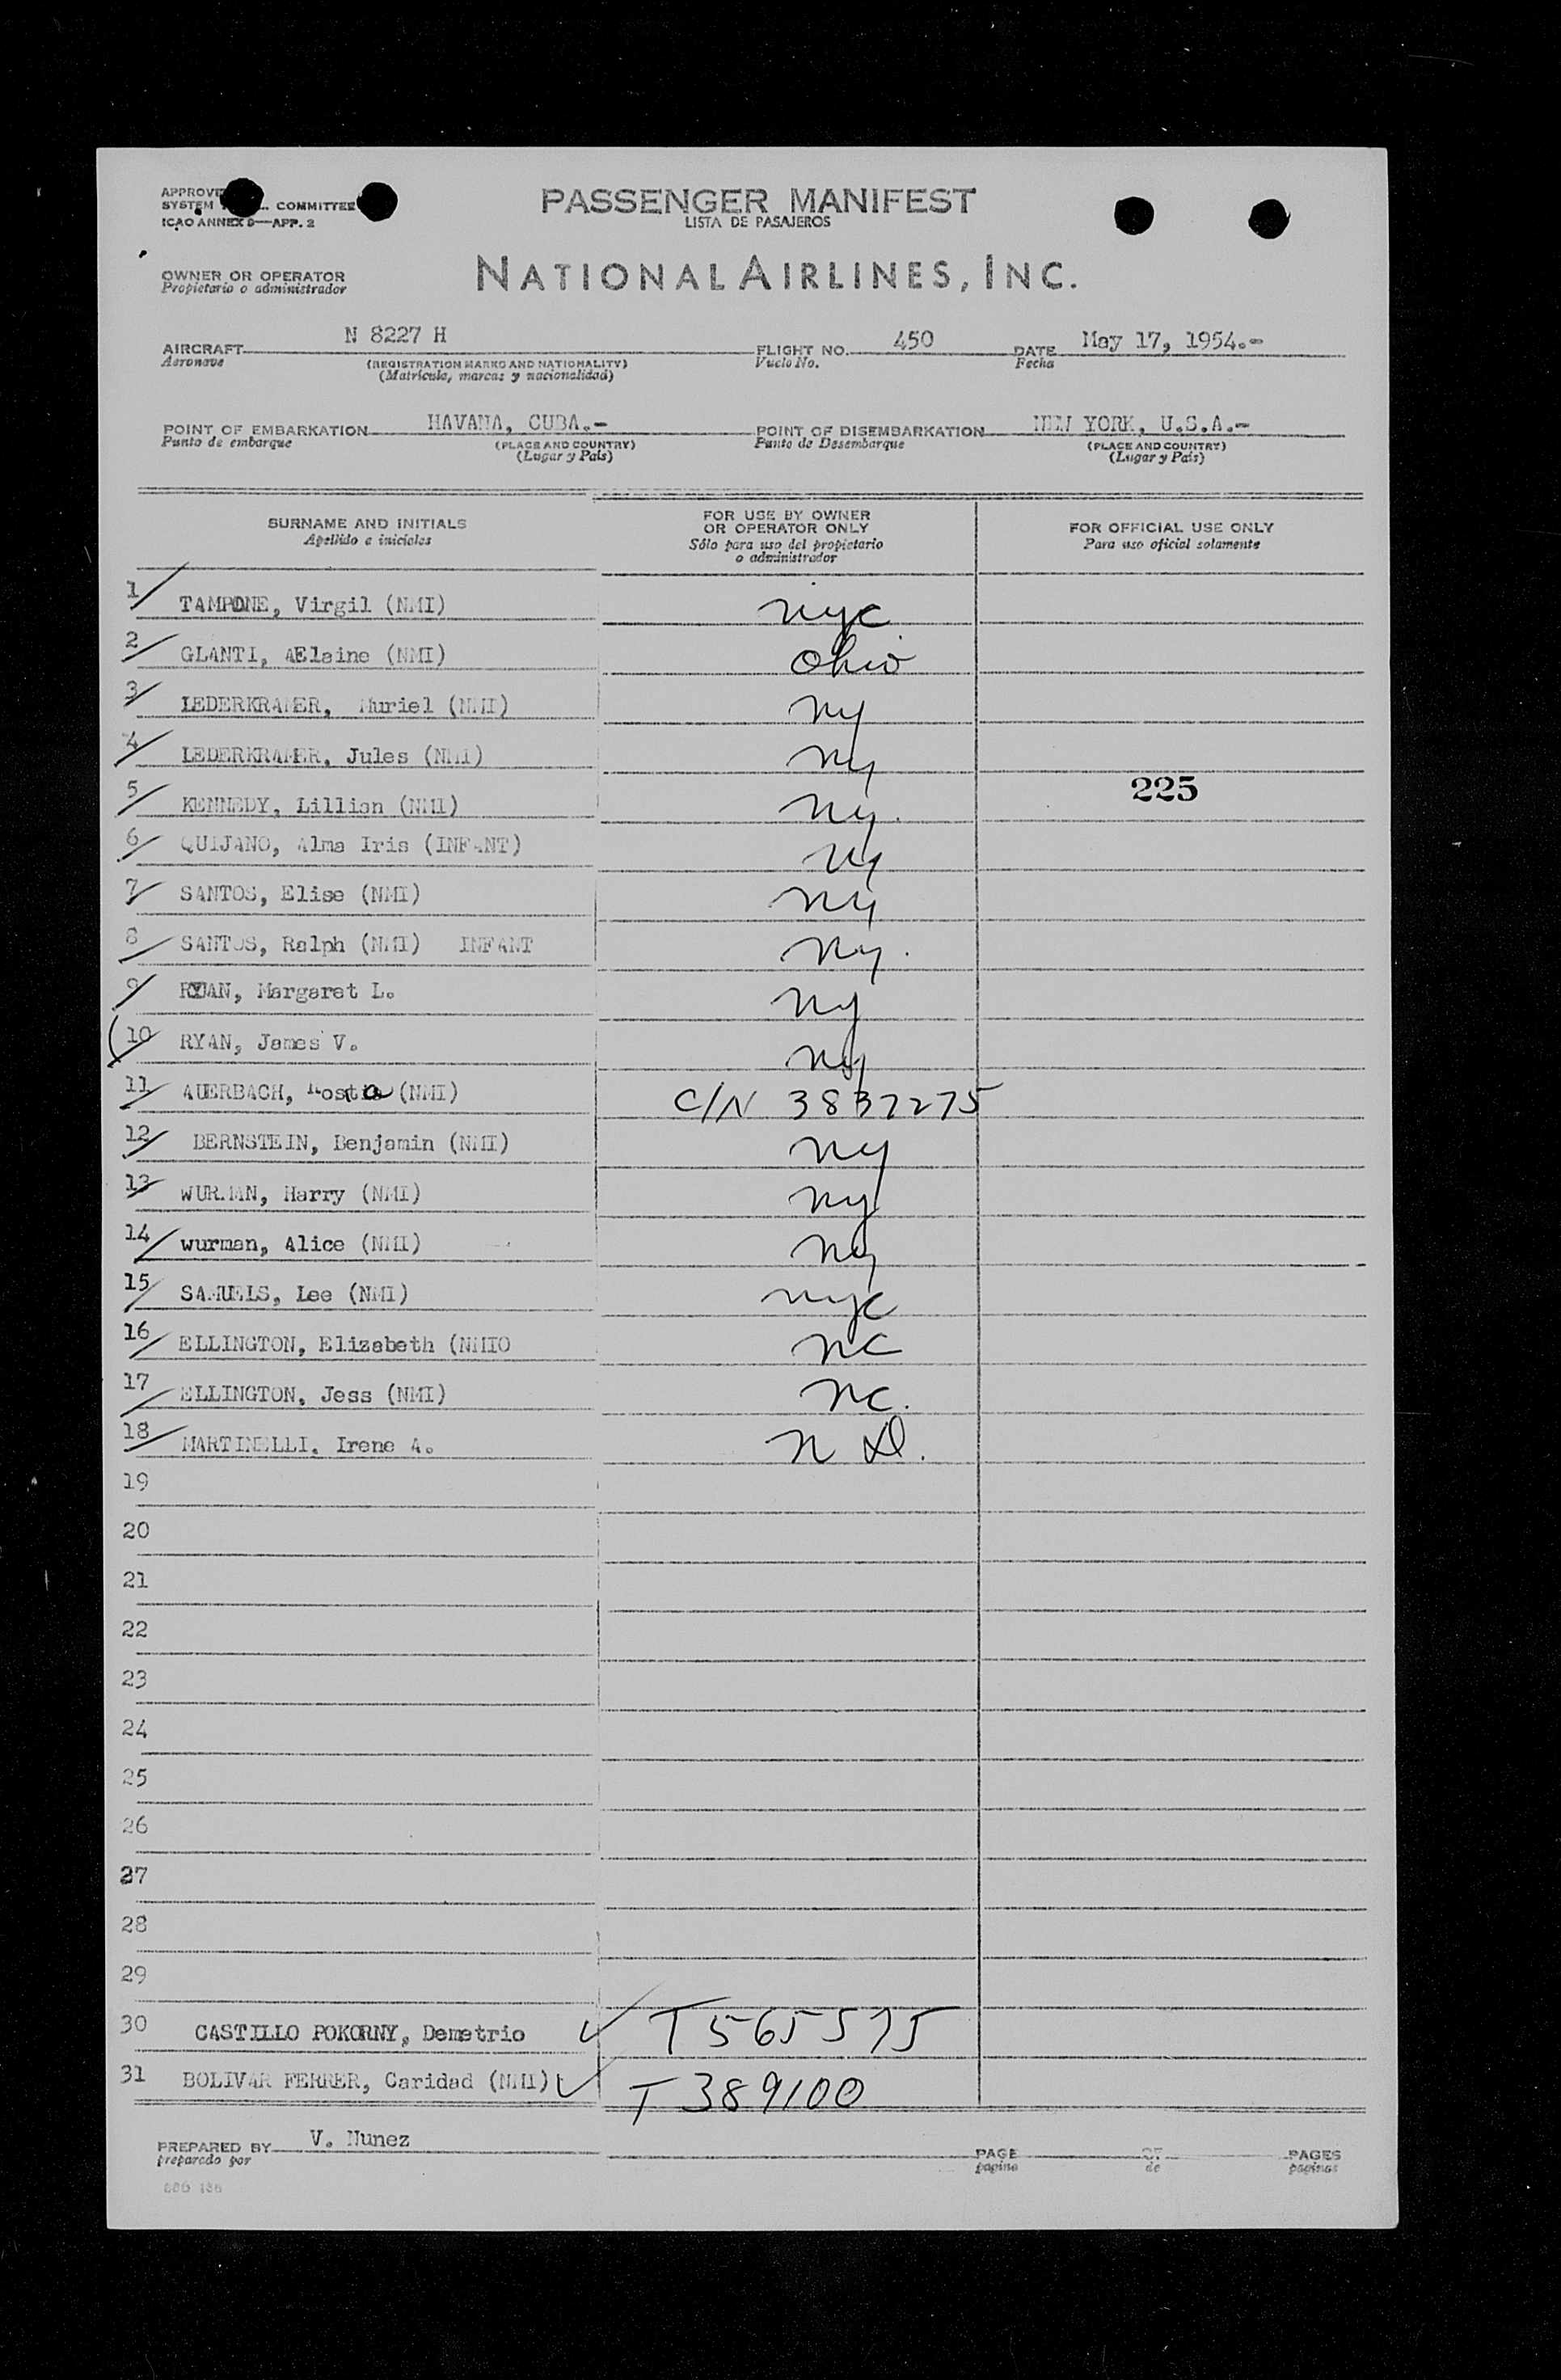 SYSTEM COMMITTEE
ICAO ANNEX 9—APP. 2
PASSENGER MANIFEST
LISTA DE PASAJEROS
OWNER OR OPERATOR
Propietario o administrador
NATIONAL AIRLINES, INC.
AIRCRAFT N 8227 H FLIGHT NO. 450 DATE May 17, 1954.-
Aeronave (REGISTRATION MARKS AND NATIONALITY) Vuelo No. Fecha
(Matrícula, marcas y nacionalidad)
POINT OF EMBARKATION HAVANA, CUBA.- POINT OF DISEMBARKATION NEW YORK, U.S.A.-
Punto de embarque (PLACE AND COUNTRY) Punto de Desembarque (PLACE AND COUNTRY)
(Lugar y País) (Lugar y País)
SURNAME AND INITIALS FOR USE BY OWNER OR OPERATOR ONLY FOR OFFICIAL USE ONLY
Apellido e iniciales Sólo para uso del propietario o administrador Para uso oficial solamente
1 TAMPONE, Virgil (NMI) nyc
2 GLANTI, AElaine (NMI) Ohio
3 LEDERKRAMER, Muriel (NMI) ny
4 LEDERKRAMER, Jules (NMI) ny
225
5 KENNEDY, Lillian (NMI) ny.
6 QUIJANO, Alma Iris (INFANT) ny
7 SANTOS, Elise (NMI) ny
8 SANTOS, Ralph (NMI) INFANT ny.
9 RYAN, Margaret L. ny
10 RYAN, James V. ny
11 AUERBACH, (NMI) C/N 3837275
12 BERNSTEIN, Benjamin (NMI) ny
13 WURMAN, Harry (NMI) ny
14 wurman, Alice (NMI) ny
15 SAMUELS, Lee (NMI) nyc
16 ELLINGTON, Elizabeth (NMIO nc
17 ELLINGTON, Jess (NMI) nc.
18 MARTINELLI, Irene A. n D.
19
20
21
22
23
24
25
26
27
28
29
30 CASTILLO POKORNY, Demetrio T 565575
31 BOLIVAR FERRER, Caridad (NMI) T 389100
PREPARED BY V. Nunez PAGE OF PAGES
preparado por pagina de paginas